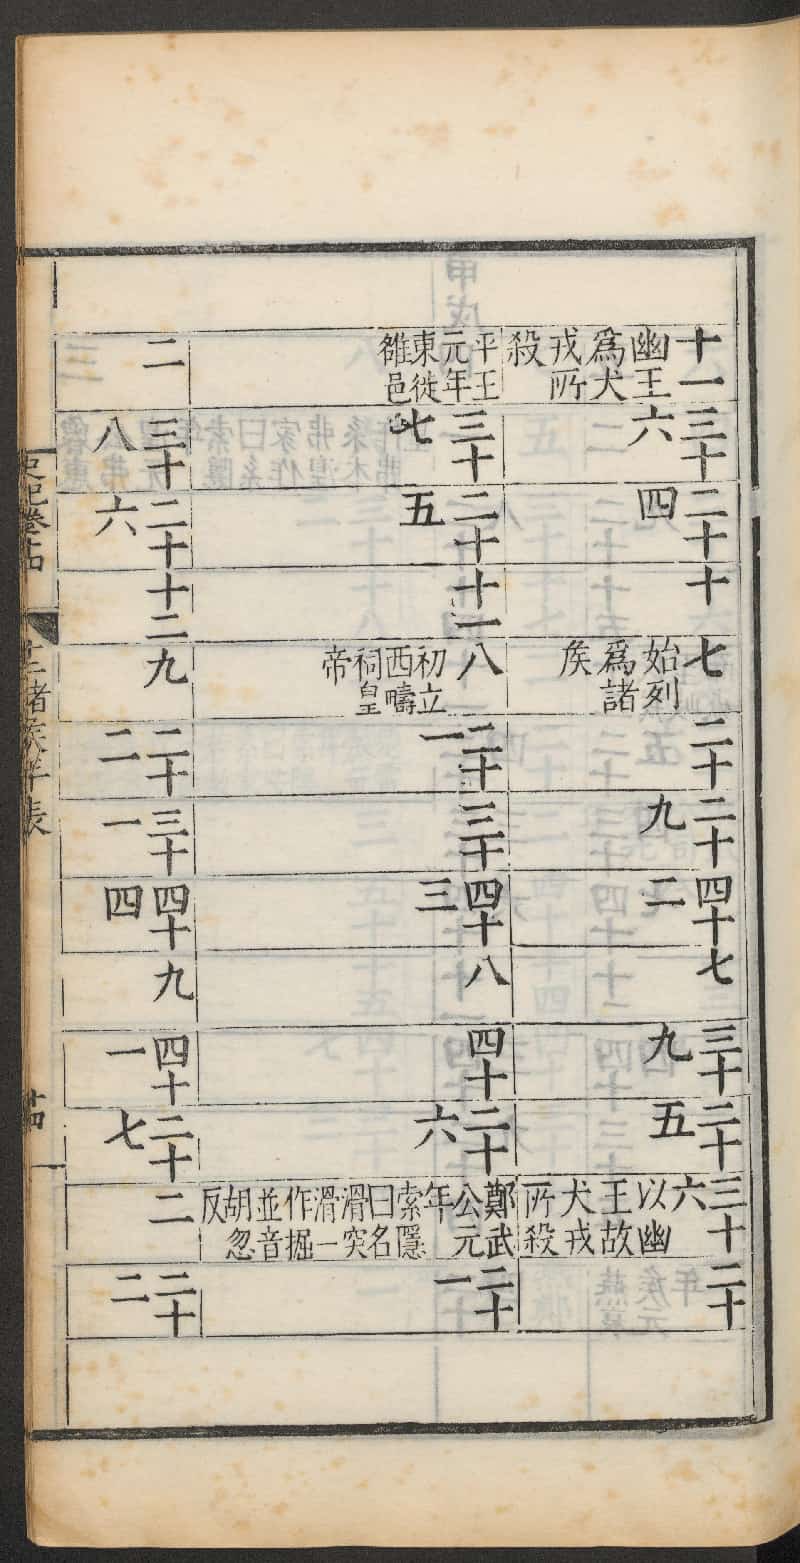 十一 幽王爲犬戎所殺
三十六
二十四
十
七 始列爲諸矦
二十
二十九
四十二
七
三十九
二十五
三十六 以幽王故犬戎所殺
二十
平王元年東徙雒邑
三十七
二十五
十一
八 初立西疇祠皇帝
二十一
三十
四十三
八
四十
二十六
鄭武公元年 索隱曰名滑突滑一作掘並音胡忽反
二十一
二
三十八
二十六
十二
九
二十二
三十一
四十四
九
四十一
二十七
二
二十二
史記卷十四
十二諸矦年表